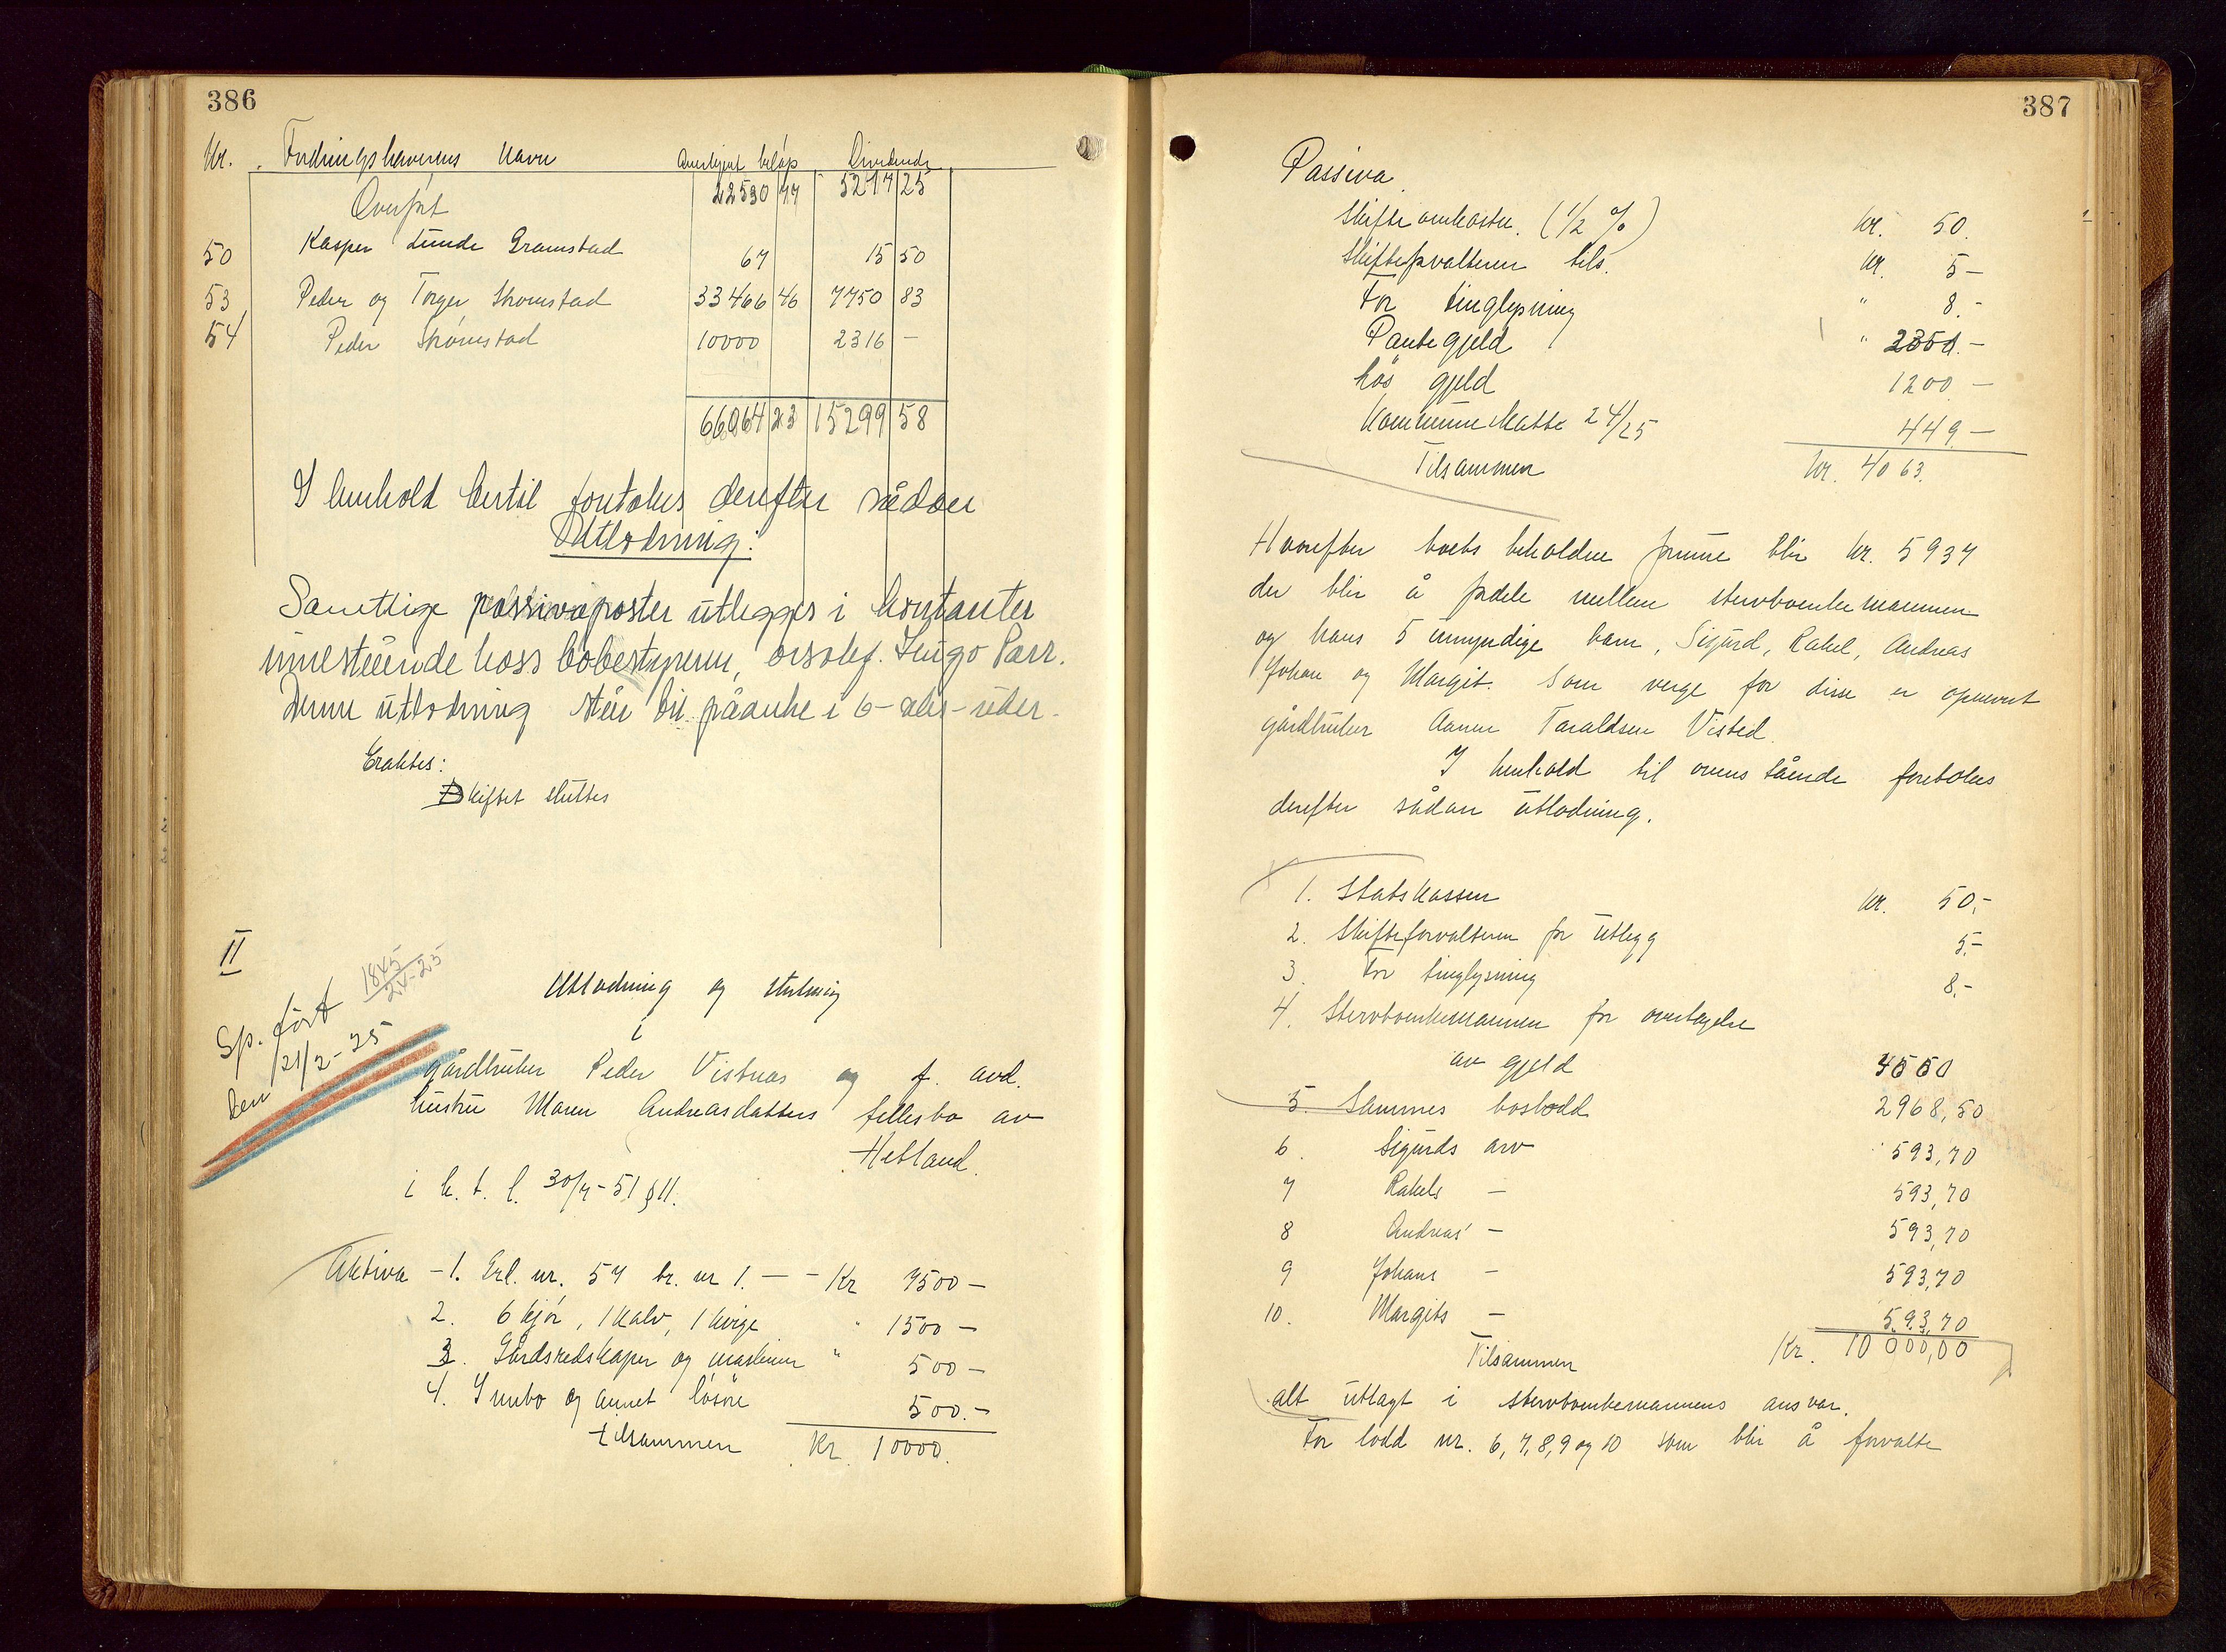 386
Nr. Fordringshaverens Navn Anerkjent beløp Dividende
Overført 22530 77 5217 25
50 Kasper Lunde Gramstad 67 15 50
53 Peder og Torger Skromstad 33466 46 7750 83
54 Peder Skromstad 10000 2316 —
66064 23 15299 58
I henhold hertil foretokes derefter sådan
Utlodning:
Samtlige passivaposter utlegges i kontanter
innestående hoss bobestyreren, orsakf. Hugo Parr.
Denne utlodning står til påanke i 6-seks-uker.
Eraktes:
Skiftet sluttes
II
1845
24-25
Sp. ført
den 21/2-25
Utlodning og slutning
i
gårdbruker Peder Vistnes og f. avd.
hustru Maren Andreasdatters fellesbo av
Hetland.
i h. t. l. 30/7-51 § 11.
Aktiva - 1. Grl. nr. 57 br. nr 1. — - Kr 7500 —
2. 6 kjør, 1 kalv, 1 kvige " 1500 —
3. Gårdsredskaper og maskiner " 500 —
4. Innbo og annet løsøre 500.—
tilsammen Kr. 10000.
387
Passiva.
Skifteomkostn. (1/2 %) kr. 50.
Skifteforvalteren tils. kr. 5—
For tinglysning " 8.-
Pantegjeld " 2351.—
Løs gjeld 1200 —
Kommuneskatte 24/25 449 —
Tilsammen kr. 4063.
Hvorefter boets beholdne formue blir kr. 5937
der blir å fordele mellem stervboenkemannen
og hans 5 umyndige barn, Sigurd, Rakel, Andreas
Johan og Margit. Som verge for disse er opnevnt
gårdbruker Aanen Taraldsen Visted.
I henhold til ovenstående foretokes
derefter sådan utlodning.
1. Statskassen kr. 50.-
2. Skifteforvalteren for utlegg 5.-
3. For tinglysning 8.-
4. Stervboenkemannen for overtagelse
av gjeld 4000
5. Sammes boslodd 2968,50
6. Sigurds arv 593,70
7 Rakels — 593,70
8 Andreas' — 593,70
9 Johans — 593,70
10. Margits — 593,70
Tilsammen Kr. 10 000,00
alt utlagt i stervboenkemannens ansvar.
For lodd nr. 6, 7, 8, 9 og 10 som blir å forvalte